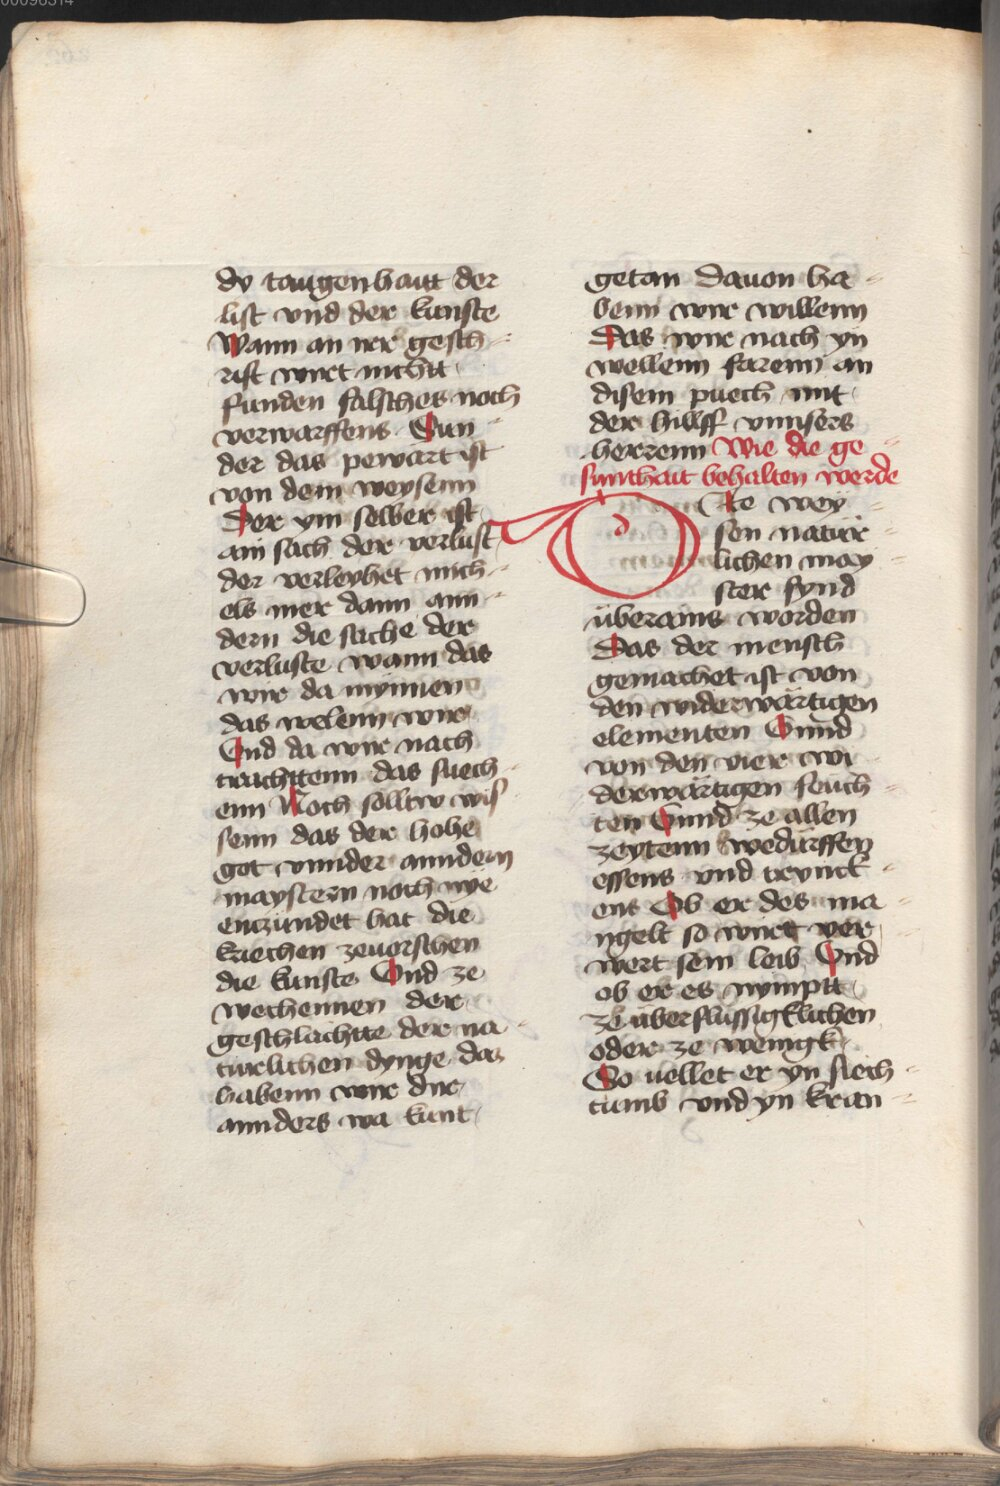 dy taugenhaitt der
list vnd der kunste
Wann an irr gesch-
rift wirt nichtt
funden falsches noch
verwarffens Sun
der das pewart ist
von dem weysenn
Der ym selber ist
ain sach der verlust
der verleyhet mich-
els mer dann ann-
dern die sache der
verluste wann das
wir da mynnen
das welenn wir
Vnd da wir nach
trachttenn das suech-
enn Noch solltw wis-
senn das der hohe
got vnnder anndern
maystern noch nye
entzündet hat die
kriechen zeuorschen
die kunste Vnd ze
wechennen der
geschlächtte der na-
türlichen dynge das
habenn wir dir
annders wa kunt
getan Dauon ha-
benn wir willenn
Das wir nach yn
wellenn farenn an
disem puech mit
der hillff vnnsers
herrenn Wie die ge-
sunthait behalten werde
Die wey-
sen natür-
lichen may-
ster synd
überains worden
Das der mensch
gemachet ist von
den widerwärtigen
elementen Vnnd
von den vier wi-
derwärtigen feuch-
ten Vnnd ze allen
zeytenn bedürffen
essens vnd trynck-
ens Ob er des ma-
ngelt so wirt ver-
wert sein leib Vnd
ob er es nymptt
ze überflüssigklichen
oder ze wenigk
So vellet er yn siech-
tumb vnd yn kran-